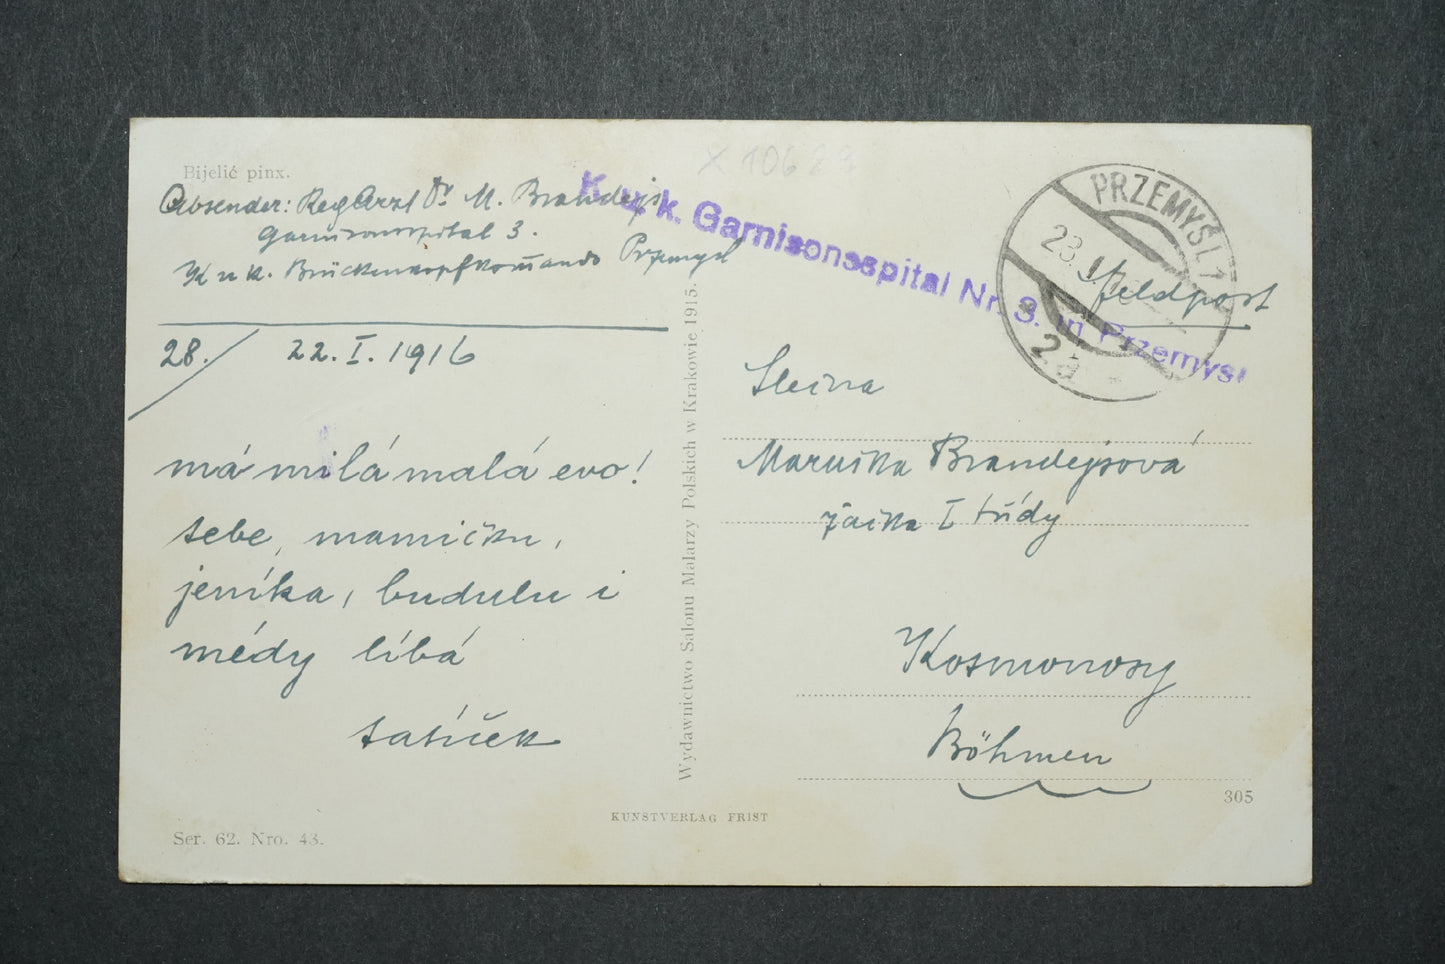 Bijelić pinx.
Absender: RegArzt Dr M. Brandejs
Garnisonsspital 3.
K u k. Brückenkopfkommando Przemysl
28./ 22. I. 1916
má milá malá evo!
tebe, mamičku,
jeníka, budulu i
médy líbá
tatíček
Ser. 62. Nro. 43.
Wydawnictwo Salonu Malarzy Polskich w Krakowie 1915.
KUNSTVERLAG FRIST
X 10628
K. u. k. Garnisonsspital Nr. 3. in Przemysl
PRZEMYŚL 1
23. I.
2a
Feldpost
Slečna
Maruška Brandejsová
žačka I třídy
Kosmonosy
Böhmen
305